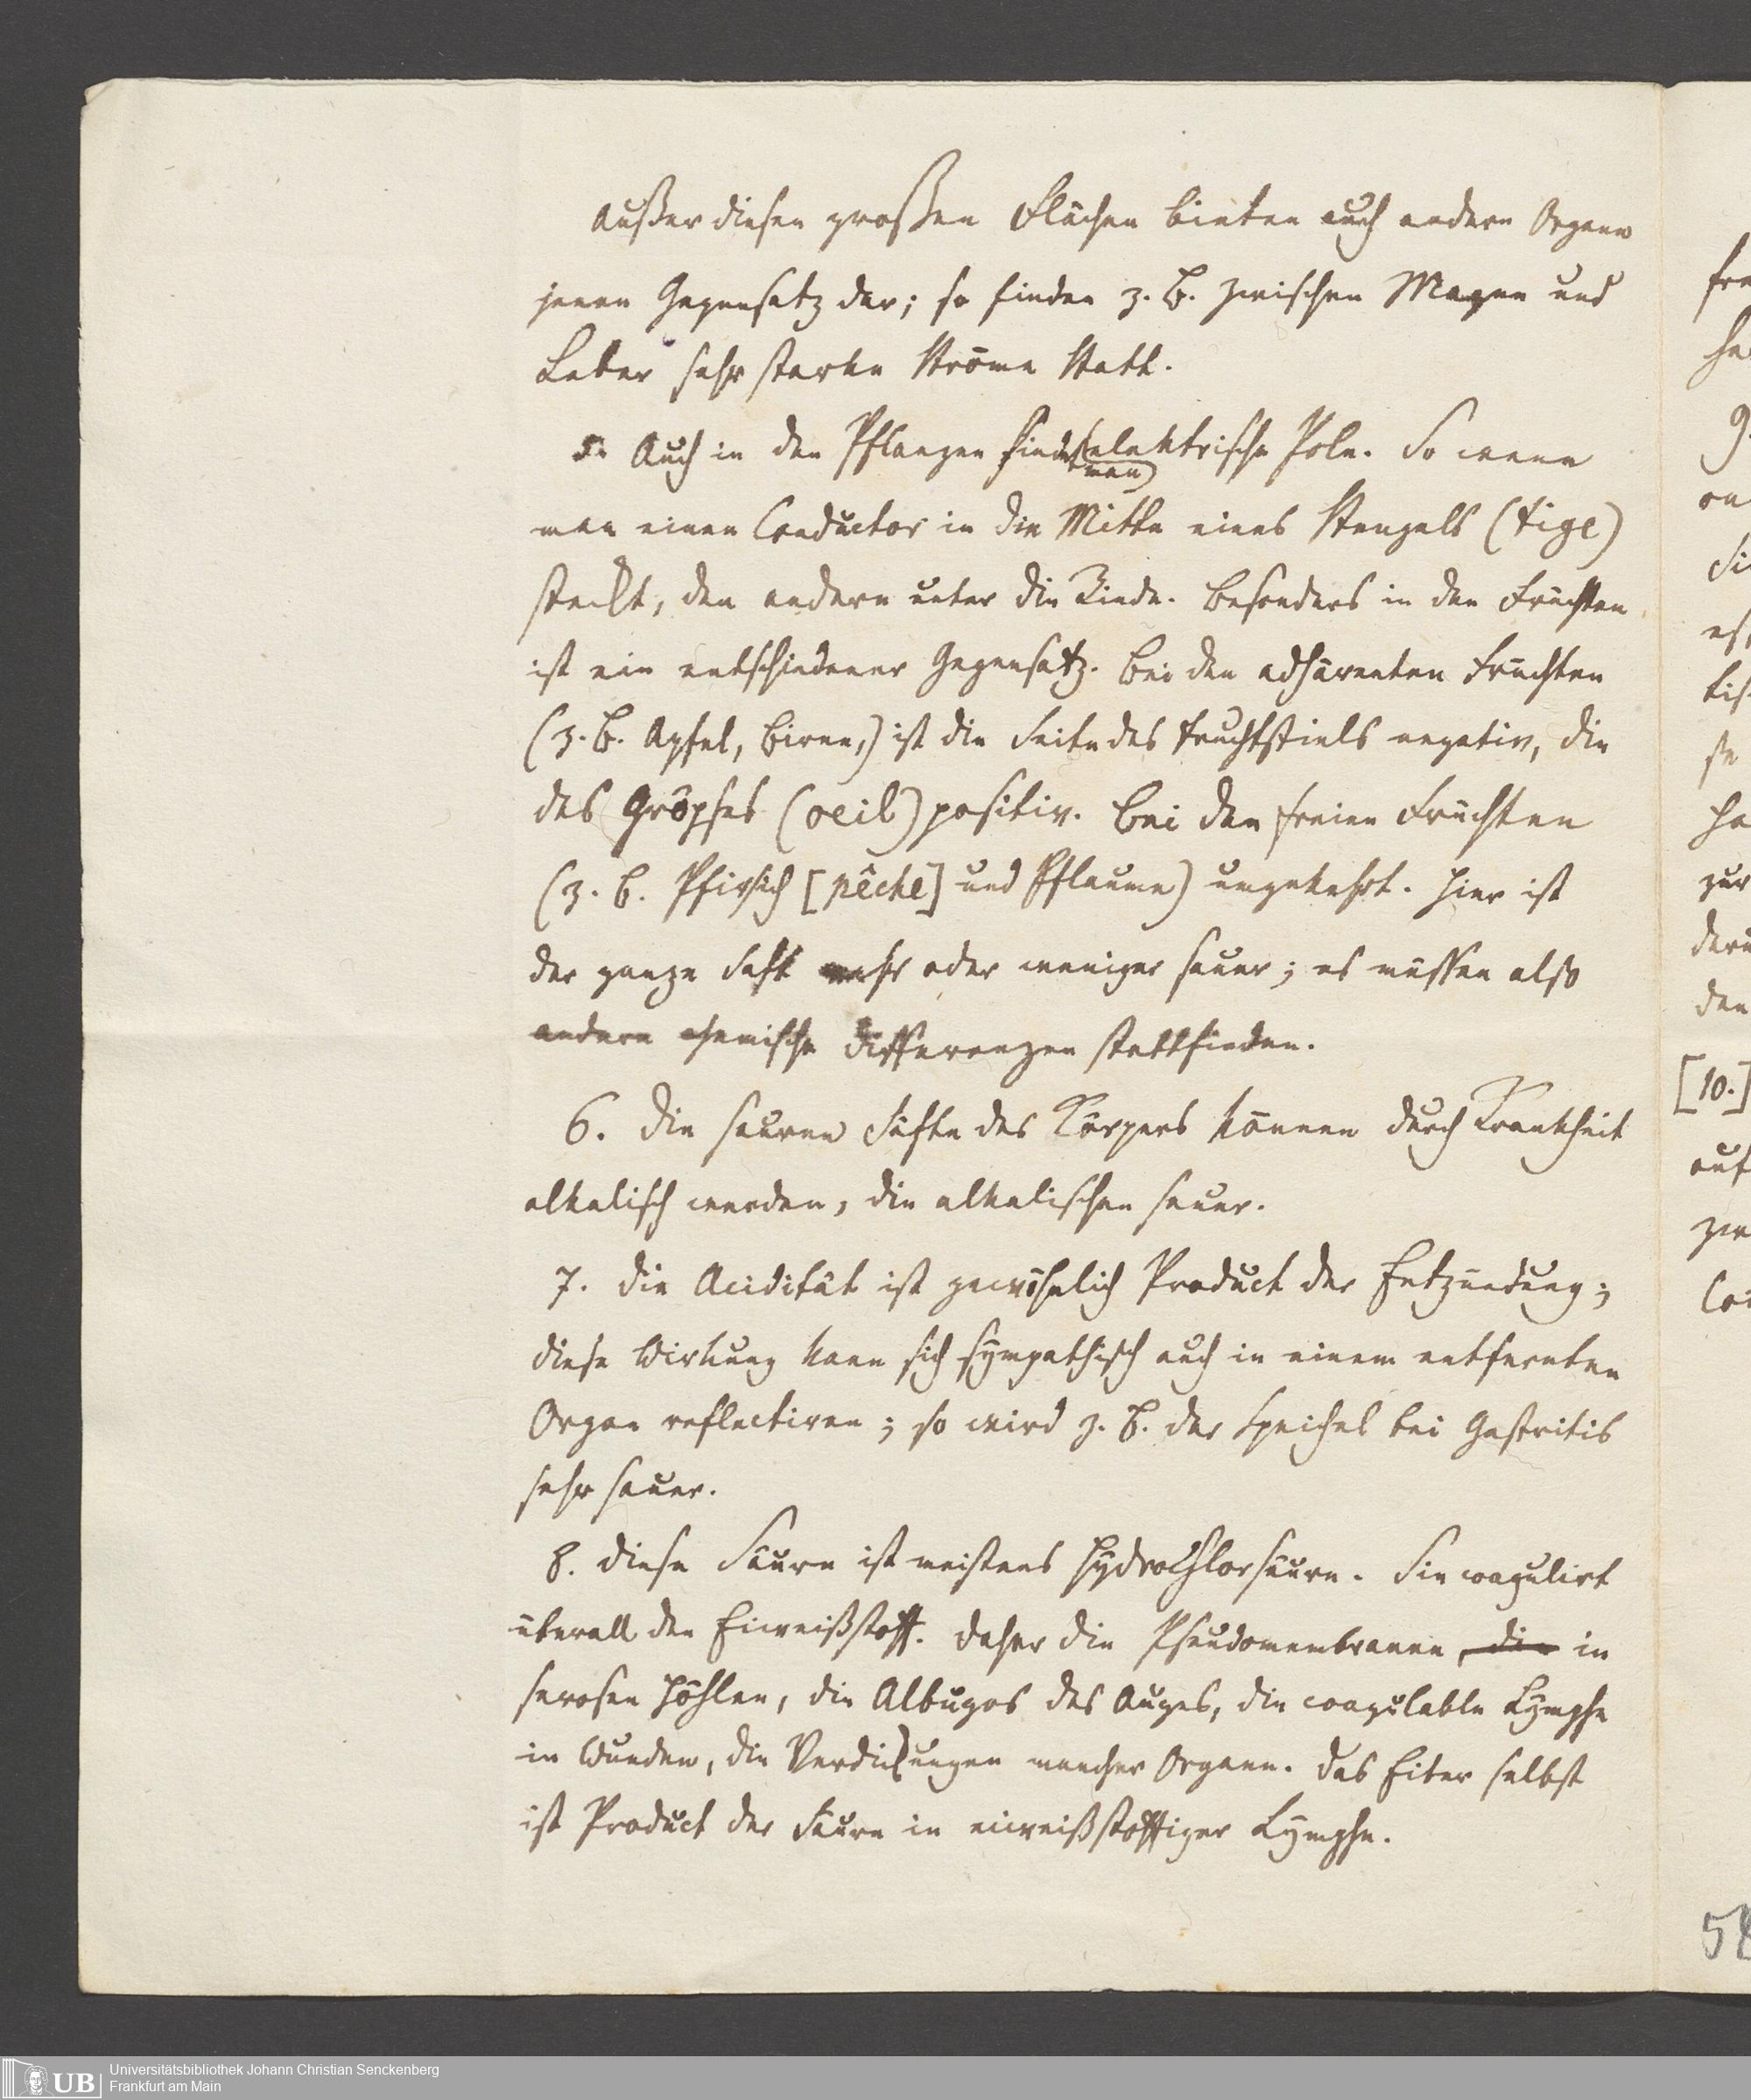 Außer diesen großen Flächen bieten auch andere Organe
jenen Gegensatz dar; so finden z. B. zwischen Magen und
Leber sehr starke Ströme Statt.
5. Auch in den Pflanzen findet man elektrische Pole. So wenn
man einen Conductor in die Mitte eines Stengels (tige)
steckt, den andern unter die Rinde. Besonders in den Früchten
ist ein entschiedener Gegensatz. Bei den adhärenten Früchten
(z. B. Apfel, Birne,) ist die Seite des Fruchtstiels negativ, die
des Gröpses (oeil) positiv. Bei den freien Früchten
(z. B. Pfirsich [pêche] und Pflaume) umgekehrt. Hier ist
der ganze Saft mehr oder weniger sauer; es müssen also
andere chemische Differenzen stattfinden.
6. Die sauren Säfte des Körpers können durch Krankheit
alkalisch werden, die alkalischen sauer.
7. Die Acidität ist gewöhnlich Product der Entzündung;
diese Wirkung kann sich sympathisch auch in einem entfernten
Organ reflectiren; so wird z. B. der Speichel bei Gastritis
sehr sauer.
8. Diese Säure ist meistens Hydrochlorsäure. Sie coagulirt
überall den Eiweißstoff. Daher die Pseudomembranen, die in
serosen Höhlen, die Albugos des Auges, die coagulable Lymphe
in Wunden, die Verdickungen mancher Organe. Das Eiter selbst
ist Product der Säure in eiweißstoffiger Lymphe.
[10.]
58
UB Universitätsbibliothek Johann Christian Senckenberg
Frankfurt am Main